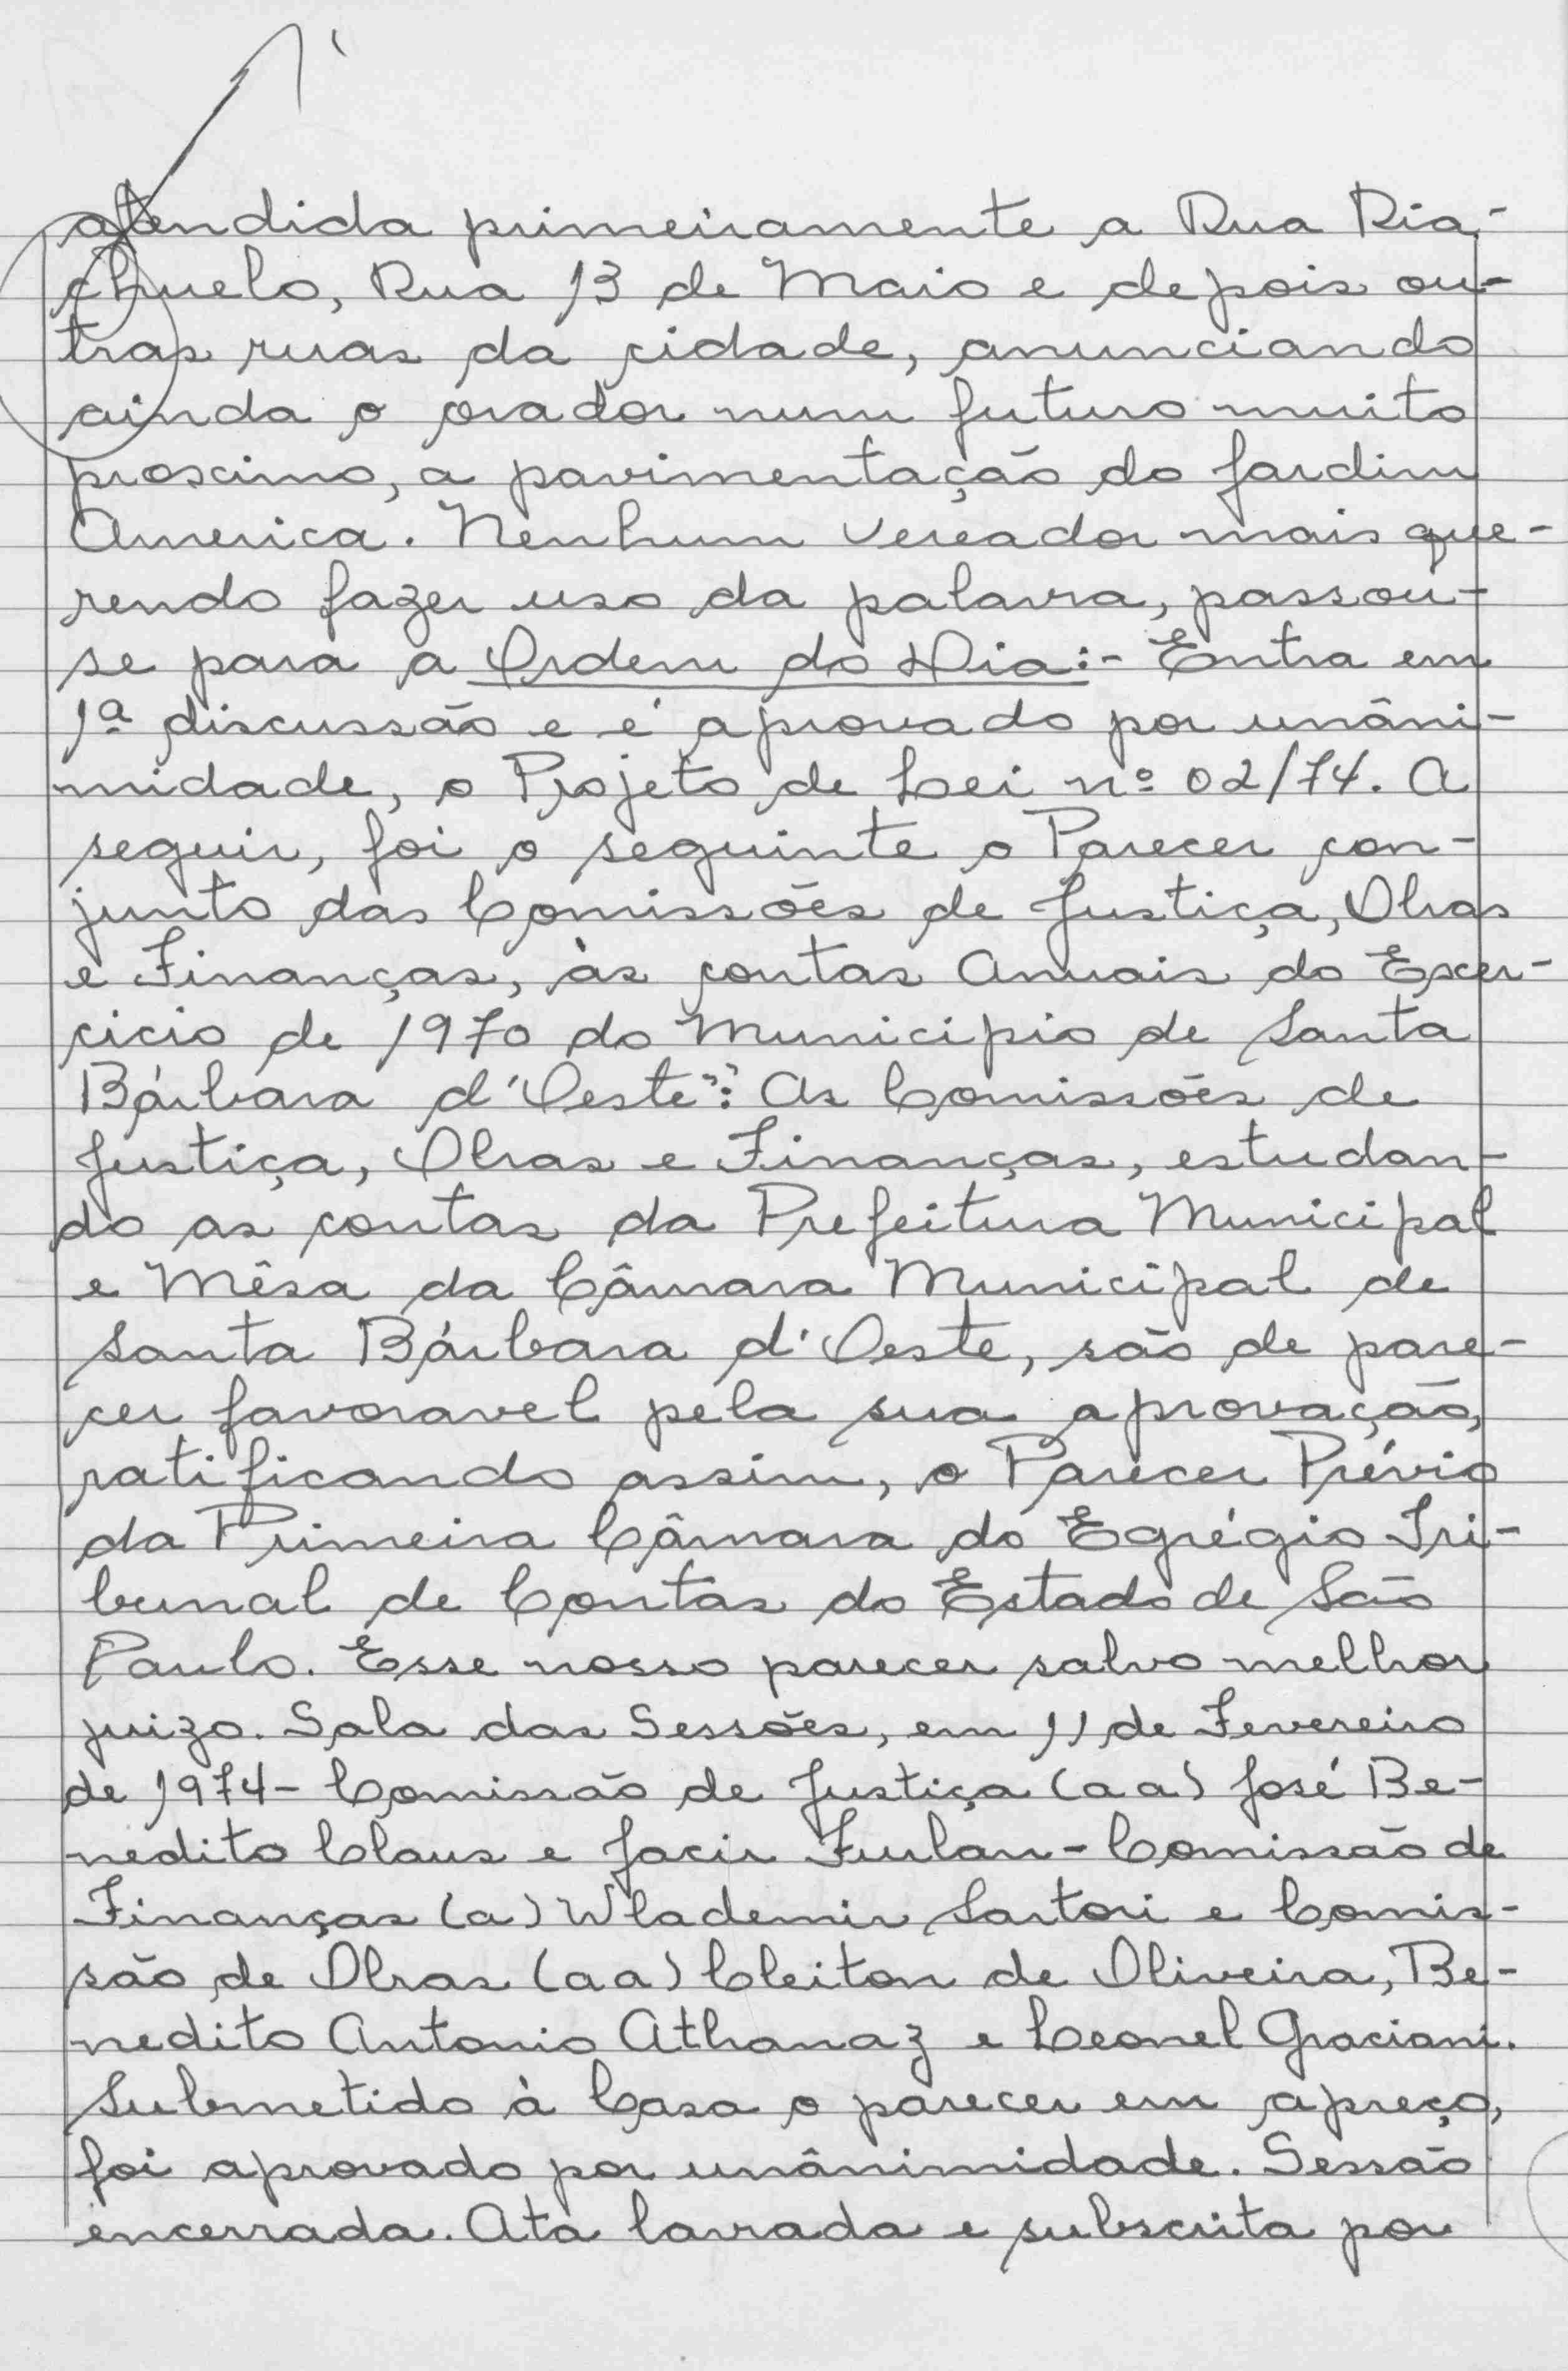 atendida primeiramente a Rua Ria-
chuelo, Rua 13 de Maio e depois ou-
tras ruas da cidade, anunciando
ainda o orador num futuro muito
proximo, a pavimentação do Jardim
America. Nenhum vereador mais que-
rendo fazer uso da palavra, passou-
se para a Ordem do Dia:- Entra em
1ª discussão e é aprovado por unâni-
midade, o Projeto de Lei nº 02/74. A
seguir, foi o seguinte o Parecer con-
junto das Comissões de Justiça, Obras
e Finanças, às contas Anuais do Exer-
cicio de 1970 do Municipio de Santa
Bárbara d'Oeste": As Comissões de
Justiça, Obras e Finanças, estudan-
do as contas da Prefeitura Municipal
e Mêsa da Câmara Municipal de
Santa Bárbara d'Oeste, são de pare-
cer favoravel pela sua aprovação,
ratificando assim, o Parecer Prévio
da Primeira Câmara do Egrégio Tri-
bunal de Contas do Estado de São
Paulo. Esse nosso parecer salvo melhor
juizo. Sala das Sessões, em 11 de Fevereiro
de 1974- Comissão de Justiça (aa) José Be-
nedito Claus e Jacir Furlan - Comissão de
Finanças (a) Wlademir Sartori e Comis-
são de Obras (aa) Cleiton de Oliveira, Be-
nedito Antonio Athanaz e Leonel Graciani.
Submetido à Casa o parecer em apreço,
foi aprovado por unânimidade. Sessão
encerrada. Ata lavrada e subscrita por